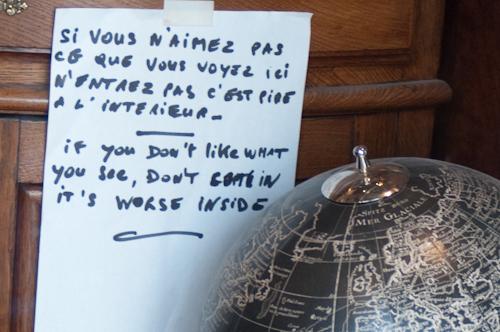 SI VOUS N'AIMEZ PAS
CE QUE VOUS VOYEZ ICI
N'ENTREZ PAS C'EST PIRE
A L'INTERIEUR_
if you DON'T like WHAT
you see, DON'T COME IN
IT'S WORSE INSIDE
MER GLACIALE